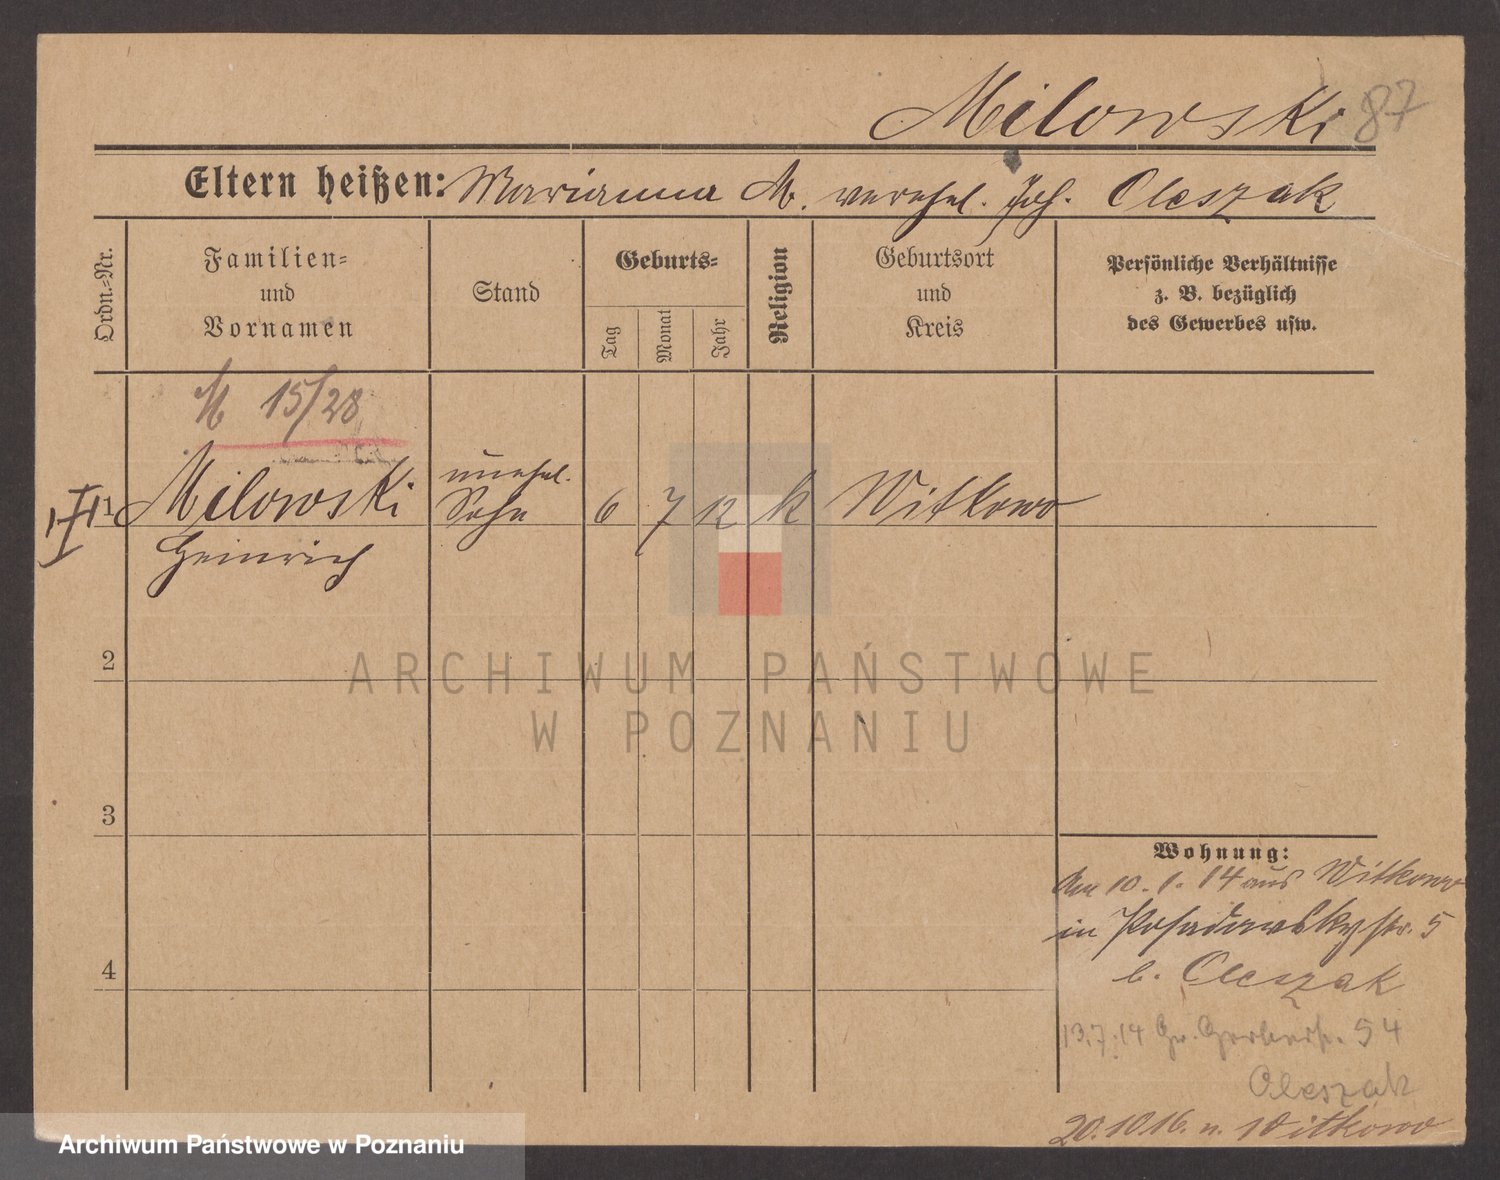 Milowski 87
Eltern heißen: Marianna M. verehel. Joh. Oleszak
Ordn.=Nr.
Familien=
und
Vornamen
Stand
Geburts=
Tag
Monat
Jahr
Religion
Geburtsort
und
Kreis
Persönliche Verhältnisse
z. B. bezüglich
des Gewerbes usw.
M 15/28
1 Milowski unehel. Sohn 6 7 12 k Witkowo
Heinrich
2
3
4
Wohnung:
Am 10.1.14 aus Witkowo
in Posadowskystr. 5
b. Oleszak
13.7.14 Gr. Gerberstr. 54
Oleszak
20.10.16. n. Witkowo
ARCHIWUM PAŃSTWOWE
W POZNANIU
Archiwum Państwowe w Poznaniu